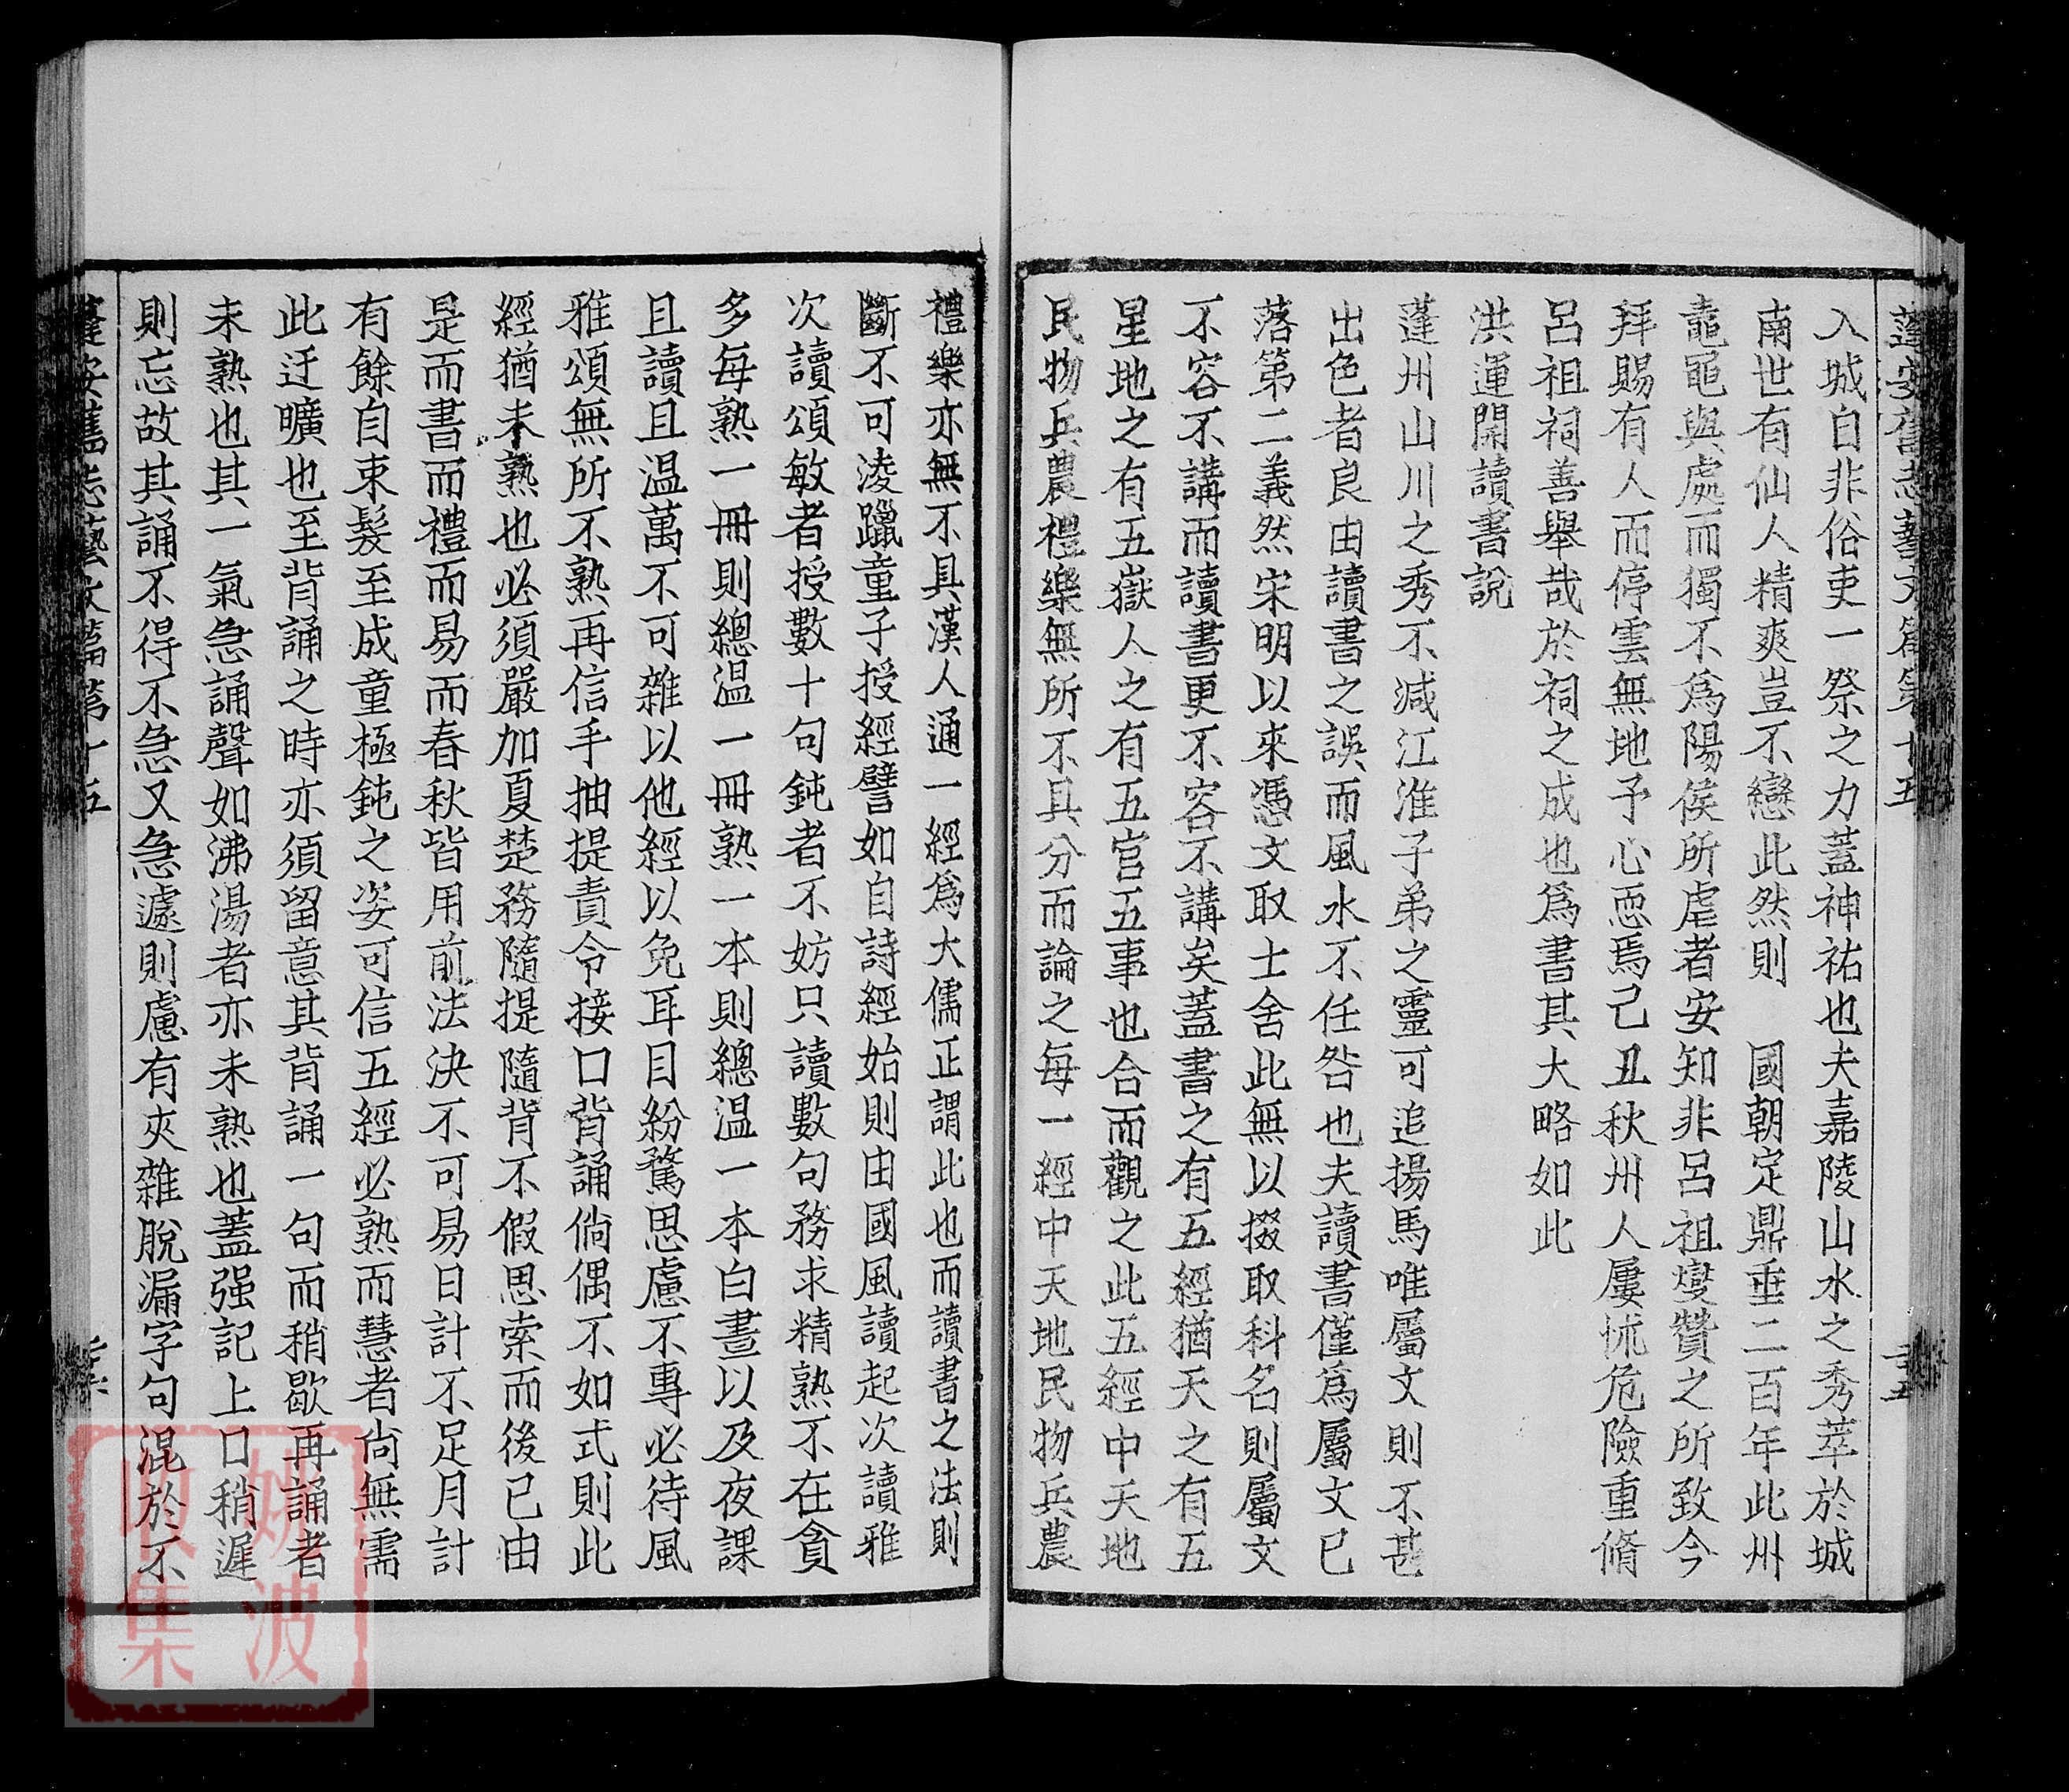 蓬安舊志藝文篇第十五
入城自非俗吏一祭之力蓋神祐也夫嘉陵山水之秀萃於城
南世有仙人精爽豈不戀此然則 國朝定鼎垂二百年此州
黿黽與處而獨不爲陽侯所虐者安知非呂祖燮贊之所致今
拜賜有人而停雲無地予心恧焉己丑秋州人屢怵危險重脩
呂祖祠善舉哉於祠之成也爲書其大略如此
洪運開讀書說
蓬州山川之秀不減江淮子弟之靈可追揚馬唯屬文則不甚
出色者良由讀書之誤而風水不任咎也夫讀書僅爲屬文已
落第二義然宋明以來憑文取士舍此無以掇取科名則屬文
不容不講而讀書更不容不講矣蓋書之有五經猶天之有五
星地之有五嶽人之有五官五事也合而觀之此五經中天地
民物兵農禮樂無所不具分而論之每一經中天地民物兵農
禮樂亦無不具漢人通一經爲大儒正謂此也而讀書之法則
斷不可淩躐童子授經譬如自詩經始則由國風讀起次讀雅
次讀頌敏者授數十句鈍者不妨只讀數句務求精熟不在貪
多每熟一冊則總温一冊熟一本則總温一本白晝以及夜課
且讀且温萬不可雜以他經以免耳目紛騖思慮不專必待風
雅頌無所不熟再信手抽提責令接口背誦倘偶不如式則此
經猶未熟也必須嚴加夏楚務隨提隨背不假思索而後已由
是而書而禮而易而春秋皆用前法決不可易日計不足月計
有餘自束髮至成童極鈍之姿可信五經必熟而慧者尙無需
此迂曠也至背誦之時亦須留意其背誦一句而稍歇再誦者
未熟也其一氣急誦聲如沸湯者亦未熟也蓋强記上口稍遲
則忘故其誦不得不急又急遽則慮有夾雜脫漏字句混於不
蓬安舊志藝文篇第十五
姚波
收集